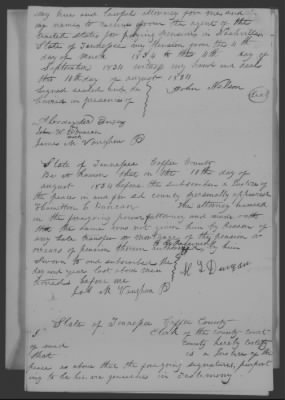 my true and lawful attorney for me and in
my name to receive from the agent of the
United States for paying pensions in Nashville
State of Tennessee my pension from the 4th
day of March 1834 to the 4th day of
September 1834 witness my hand and seal
this 18th day of august 1834
Signed sealed and
in presence of
John Nelson
Seal
Alexander
John W
James M. Vaughan
State of Tennessee Coffee County
Be it known that on the 18th day of
august 1834 before the subscriber a Justice of
the peace in and for sd county personally appeared
Hamilton L Duncan The attorney named
in the foregoing power of attorney and made oath
that the same was not given him by reason of
any sale transfer or mortgage of the pension or
arrears of pension therein to be received by him
Sworn to and subscribed the
day and year last above
before me
H L Duncan
M Vaughan
State of Tennessee Coffee County
Clerk of the county court
of said County hereby certify
that is a Justice of the
peace as above that the foregoing signatures, purport
ing to be his are genuine in testimony